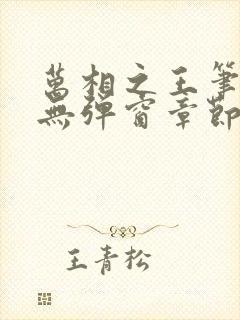 萬相之王筆
無彈窗章節
王青松